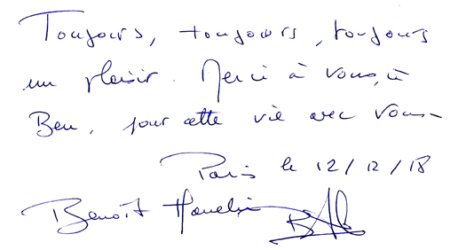 Toujours, toujours, toujours
un plaisir. Merci à vous, à
Ben, pour cette vie avec vous-
Paris le 12/12/18
Benoît